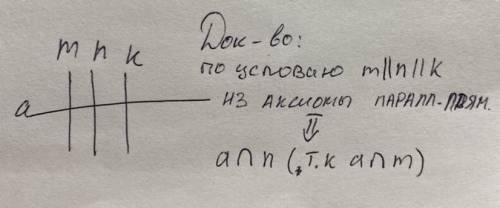 m n k
Док-во:
по условию m||n||k
a
из аксиомы паралл. прям.
⇓
a∩n (, т.к a∩m)